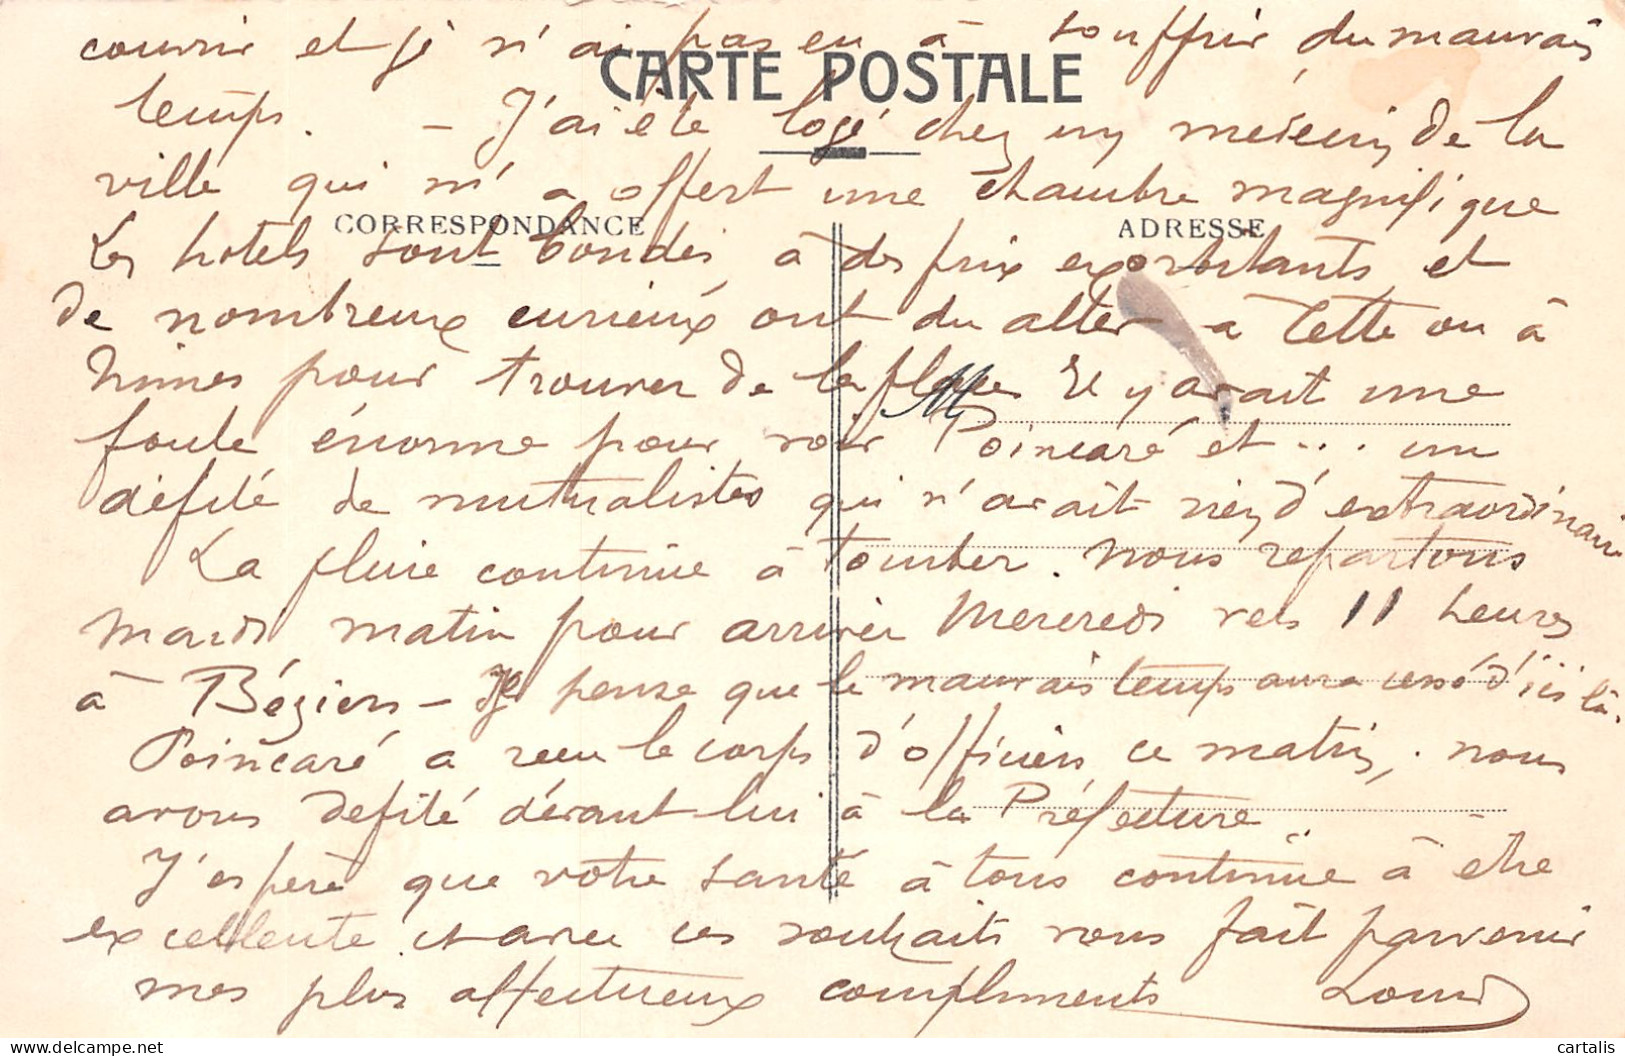 couvrir et je n'ai pas eu à souffrir du mauvais
CARTE POSTALE
temps. - J'ai été logé chez un médecin de la
ville qui m'a offert une chambre magnifique
CORRESPONDANCE
ADRESSE
Les hotels sont bondés à des prix exorbitants et
de nombreux curieux ont du aller à Cette ou à
Nimes pour trouver de la place Il y avait une
M
foule énorme pour voir Poincaré et ... un
défilé de mutualistes qui n'avait rien d'extraordinaire
La pluie continue à tomber. Nous repartons
Mardi matin pour arriver Mercredi vers 11 heures
à Béziers - Je pense que le mauvais temps aura cessé d'ici là.
Poincaré a recu le corps d'officiers ce matin, nous
avons défilé dévant lui à la Préfecture.
J'espère que votre santé à tous continue à être
excellente et avec ces souhaits vous fait parvenir
mes plus affectueux compliments Louis
cartalis